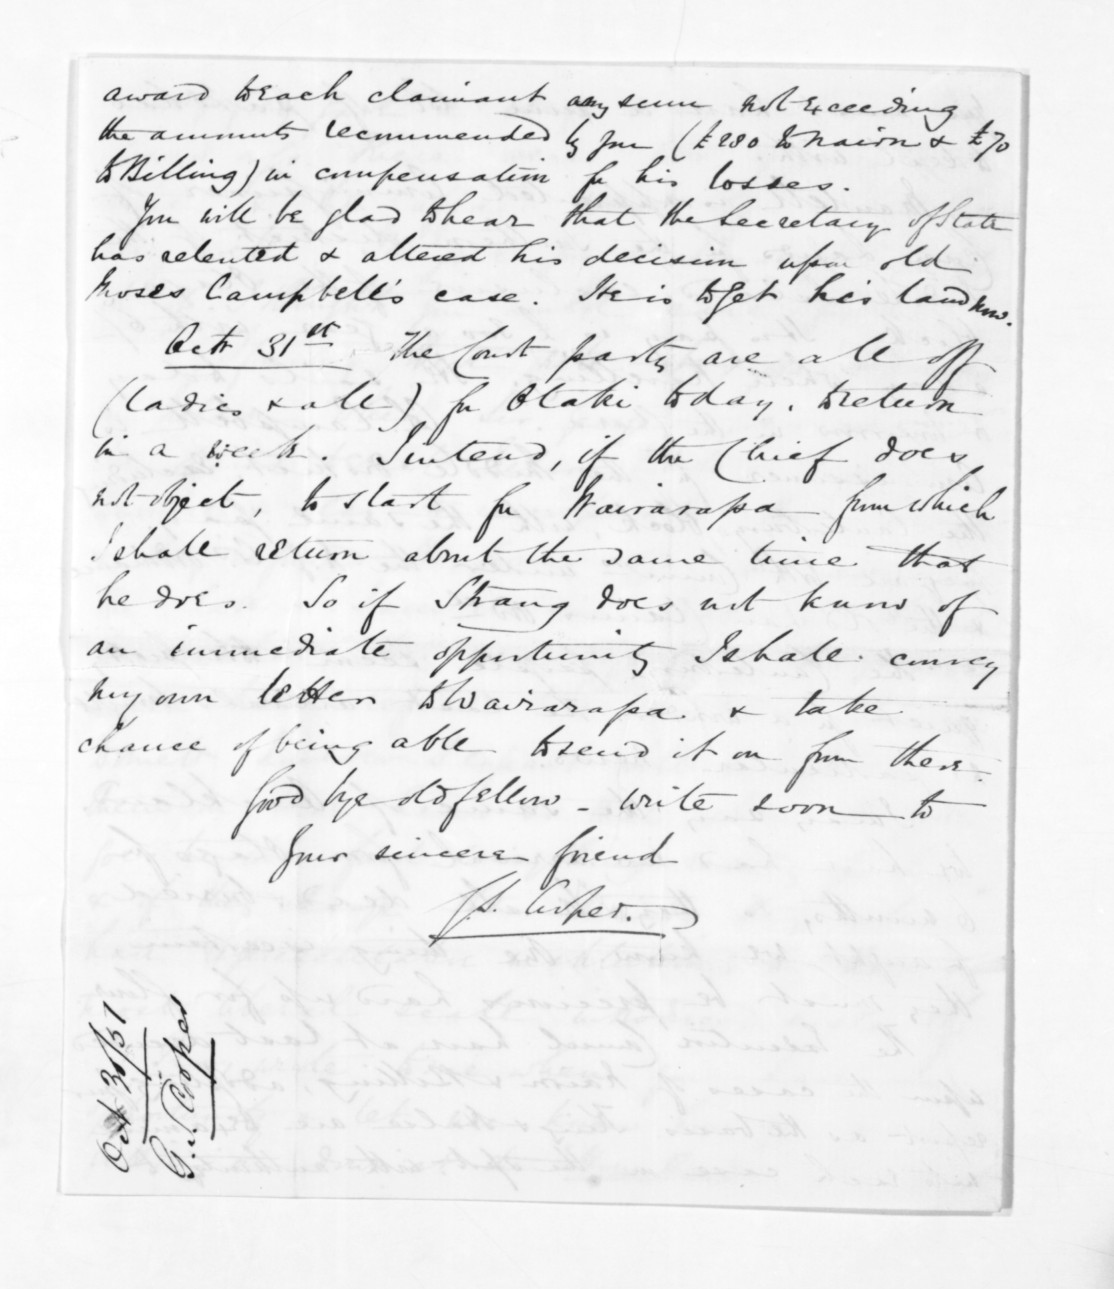 award to each claimant any sum not exceeding
the amounts recommended by you (£280 to Nairn & £70
to Billing) in compensation for his losses.
You will be glad to hear that the Secretary of State
has relented & altered his decision upon old
Moses Campbell's case. He is to get his land now.
Octr 31st The Court party are all off
(ladies & all) for Otaki today, to return
in a week. I intend, if the Chief does
not object, to start for Wairarapa from which
I shall return about the same time that
he does. So if Strang does not know of
an immediate opportunity I shall convey
my own letter to Wairarapa & take
chance of being able to send it on from there.
Good bye old fellow - write soon to
Your sincere friend
G.S. Cooper.
Oct 30/51
G.S. Cooper